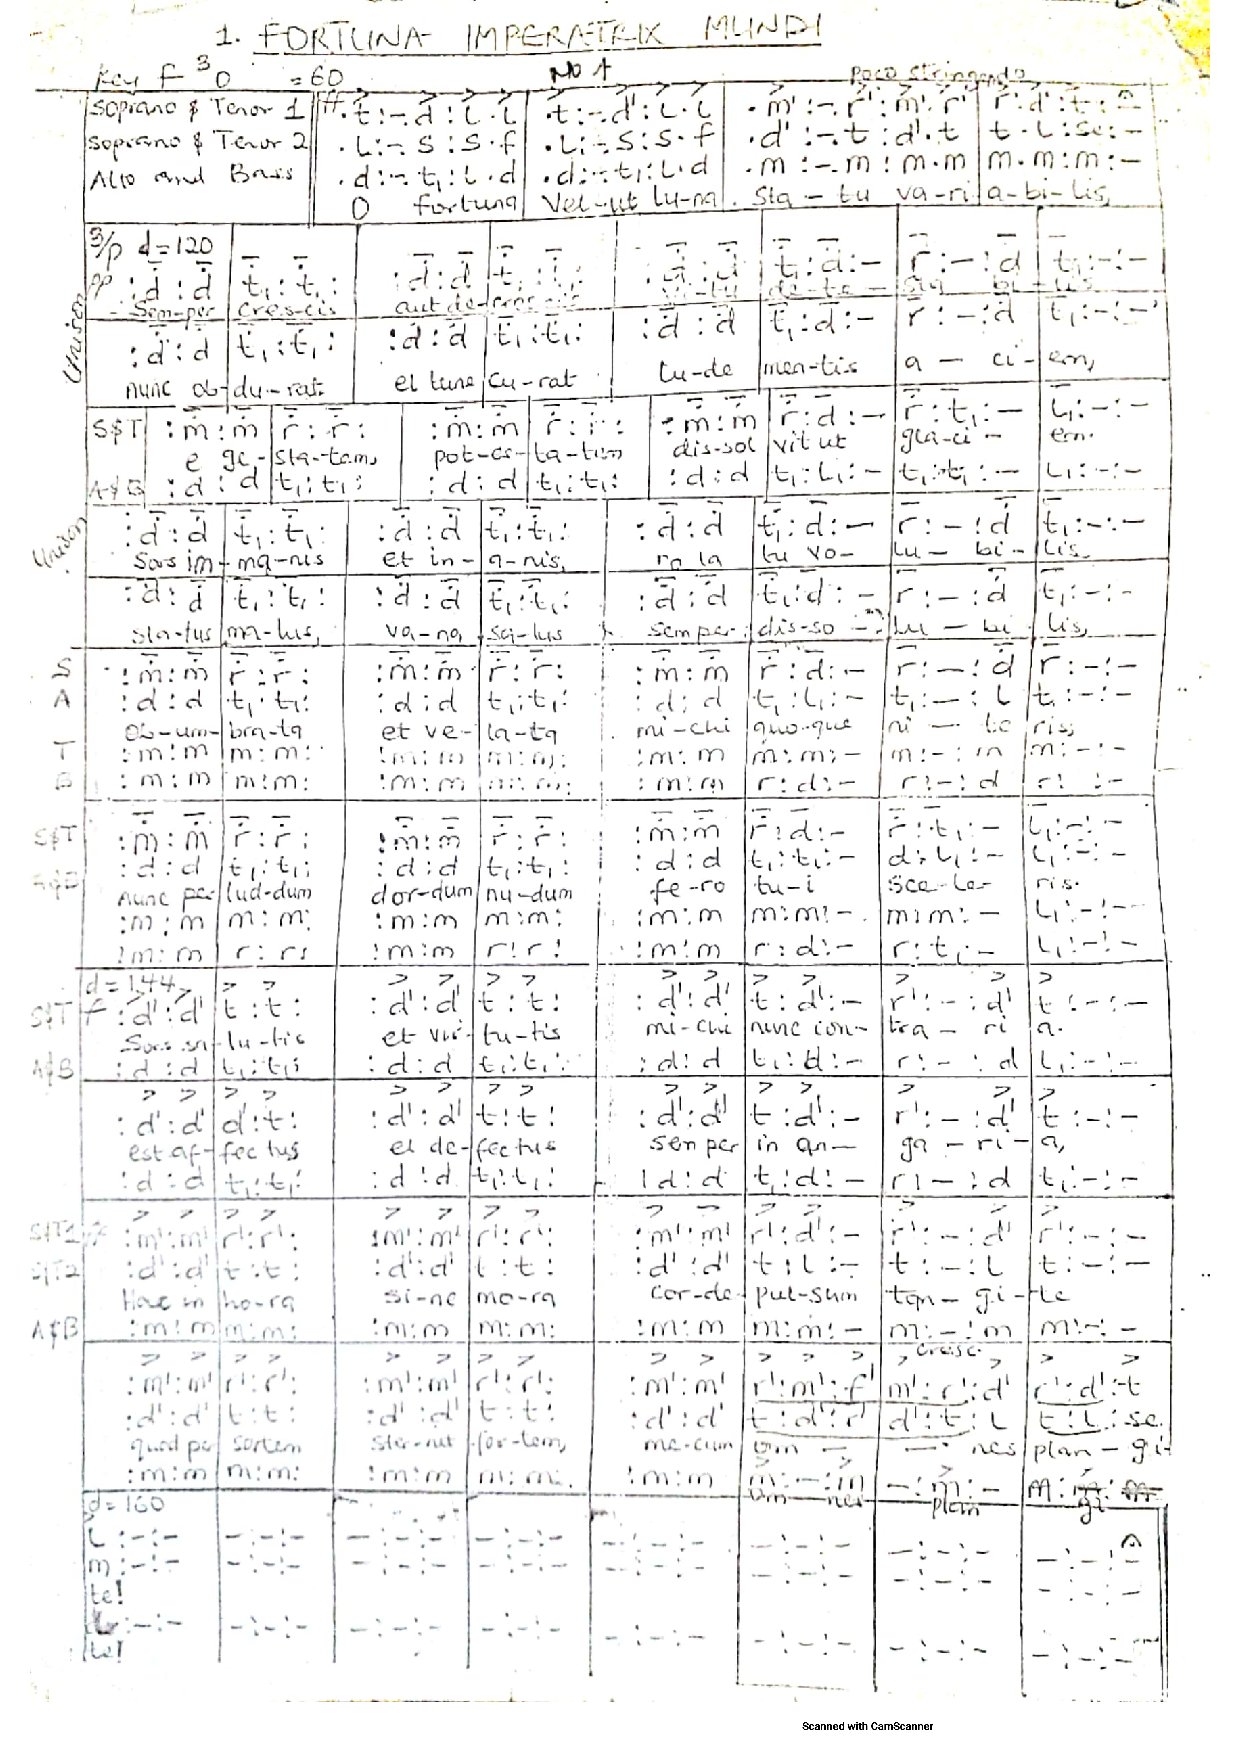 1. FORTUNA IMPERATRIX MUNDI
Key F 3 0 = 60 No 1 Poco stringendo
Soprano & Tenor 1 ff .t:-.d':l.l .t:-.d':l.l .m':-.r':m'.r' r'.d':t:-
Soprano & Tenor 2 .l:-.s:s.f .l:-.s:s.f .d':-.t:d'.t t.l:se:-
Alto and Bass .d:-.t₁:l.d .d:-.t₁:l.d .m:-.m:m.m m.m:m:-
O fortuna Vel-ut lu-na. Sta-tu va-ri a-bi-lis,
3/p d=120
pp :d:d t₁:t₁: :d:d t₁:t₁: :d:d t₁:d:- r:-:d t₁:-:-
Unison
Sem-per cres-cis aut de-cres-cis
:d:d t₁:t₁: :d:d t₁:t₁: :d:d t₁:d:- r:-:d t₁:-:-'
nunc ob-du-rat et tunc cu-rat lu-de men-tis a-ci-em,
S&T :m:m r:r: :m:m r:r: :m:m r:d:- r:t₁:- l₁:-:-
e ge-sta-tem, pot-es-ta-tem dis-sol vit ut gla-ci- em.
A&B :d:d t₁:t₁: :d:d t₁:t₁: :d:d t₁:l₁:- t₁:t₁:- l₁:-:-
Unison :d:d t₁:t₁: :d:d t₁:t₁: :d:d t₁:d:- r:-:d t₁:-:-
Sors im-ma-nis et in-a-nis, ro la tu vo- lu-bi-lis.
:d:d t₁:t₁: :d:d t₁:t₁: :d:d t₁:d:- r:-:d t₁:-:-
sta-tus ma-lus, va-na sa-lus semper dis-so- lu-bi lis,
S :m:m r:r: :m:m r:r: :m:m r:d:- r:-:d r:-:-
A :d:d t₁:t₁: :d:d t₁:t₁: :d:d t₁:l₁:- t₁:-:l t₁:-:-
Ob-um-bra-ta et ve-la-ta mi-chi quo-que ni-te ris;
T :m:m m:m: :m:m m:m: :m:m m:m:- m:-:m m:-:-
B :m:m m:m: :m:m m:m: :m:m r:d:- r:-:d r:-:-
S&T :m:m r:r: :m:m r:r: :m:m r:d:- r:t₁:- l₁:-:-
A&B :d:d t₁:t₁: :d:d t₁:t₁: :d:d t₁:t₁:- d:l₁:- l₁:-:-
Nunc per lud-dum dor-dum nu-dum fe-ro tu-i sce-le- ris.
:m:m m:m: :m:m m:m: :m:m m:m:- m:m:- l₁:-:-
:m:m r:r: :m:m r:r: :m:m r:d:- r:t₁:- l₁:-:-
d=144
S&T f :d':d' t:t: :d':d' t:t: :d':d' t:d':- r':-:d' t:-:-
Sors sa-lu-tis et vir-tu-tis mi-chi nunc con-tra-ri a.
A&B :d:d t₁:t₁: :d:d t₁:t₁: :d:d t₁:d:- r:-:d t₁:-:-
:d':d' d':t: :d':d' t:t: :d':d' t:d':- r':-:d' t:-:-
est af-fectus et de-fectus semper in an-ga-ri-a,
:d:d t₁:t₁: :d:d t₁:t₁: :d:d t₁:d:- r:-:d t₁:-:-
:m':m' r':r': :m':m' r':r': :m':m' r':d':- r':-:d' r':-:-
S/T2 :d':d' t:t: :d':d' t:t: :d':d' t:l:- t:-:l t:-:-
Hac in ho-ra si-ne mo-ra cor-de pul-sum tan-gi-te
A&B :m:m m:m: :m:m m:m: :m:m m:m:- m:-:m m:-:-
Cresc.
:m':m' r':r': :m':m' r':r': :m':m' r':m':f' m':r':d' r':d':t
:d':d' t:t: :d':d' t:t: :d':d' t:d':r' d':t:l t:l:se
quod per sortem ster-nit for-tem, me-cum om- - nes plan-gi-
:m:m m:m: :m:m m:m: :m:m m:-:m -:m:- m:
om nes plan gi
d=160
l:-:- -:-:- -:-:- -:-:- -:-:- -:-:- -:-:- -:-:-
m:-:- -:-:- -:-:- -:-:- -:-:- -:-:- -:-:- -:-:-
te!
:-:- -:-:- -:-:- -:-:- -:-:- -:-:- -:-:- -:-:-
te!
Scanned with CamScanner